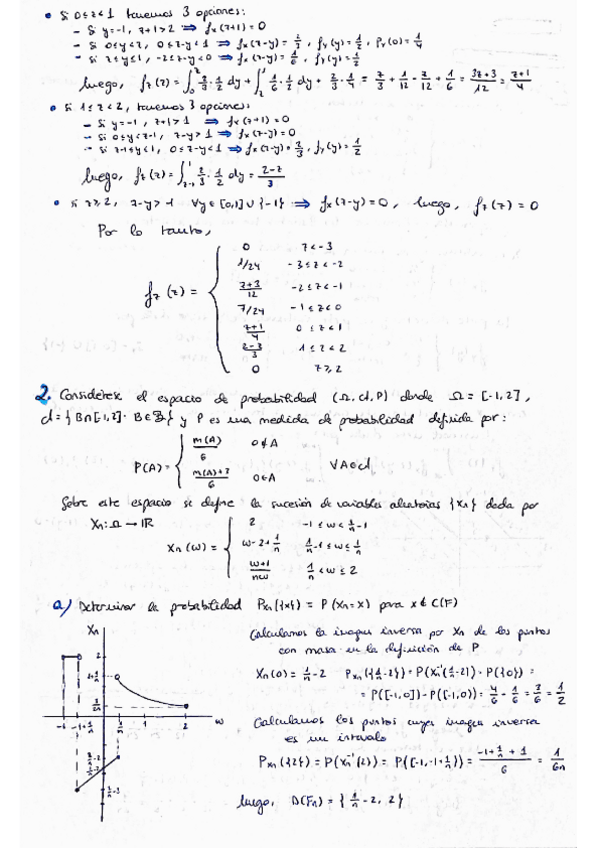 • Si 0≤z<1 tenemos 3 opciones:
- Si y=-1, z+1>2 ⟹ fx(z+1)=0
- Si 0≤y<z, 0≤z-y<1 ⟹ fx(z-y)=2/3, fy(y)=1/2, Py(0)=1/4
- Si z≤y≤1, -2≤z-y<0 ⟹ fx(z-y)=1/6, fy(y)=1/2
luego, fz(z) = ∫ 2/3·1/2 dy + ∫ 1/6·1/2 dy + 2/3·1/4 = z/3 + 1/12 - z/12 + 1/6 = 3z+3/12 = z+1/4
• Si 1≤z<2, tenemos 3 opciones:
- Si y=-1, z+1>1 ⟹ fx(z+1)=0
- Si 0≤y≤z-1, z-y>1 ⟹ fx(z-y)=0
- Si z-1≤y≤1, 0≤z-y<1 ⟹ fx(z-y)=2/3, fy(y)=1/2
luego, fz(z) = ∫ 2/3·1/2 dy = 2-z/3
• Si z≥2, z-y>1 ∀y∈[0,1]∪{-1} ⟹ fx(z-y)=0, luego, fz(z)=0
Por lo tanto,
fz(z) =
0 z<-3
1/24 -3≤z<-2
z+3/12 -2≤z<-1
7/24 -1≤z<0
z+1/4 0≤z<1
2-z/3 1≤z<2
0 z≥2
2. Considérese el espacio de probabilidad (Ω, A, P) donde Ω=[-1,2],
A={B∩[-1,2]: B∈B} y P es una medida de probabilidad definida por:
P(A) =
m(A)/6 0∉A
m(A)+3/6 0∈A
∀A∈A
Sobre este espacio se define la sucesión de variables aleatorias {Xn} dada por
Xn: Ω → IR
Xn(w) =
2 -1≤w<1/n-1
w-2+1/n 1/n-1≤w≤1/n
w+1/nw 1/n<w≤2
a) Determinar la probabilidad Pxn({x}) = P(Xn=x) para x∉C(F)
Xn
2
3/2n
-1
-1+1/n
1/n
1
2
w
2/n-2
1/n-2
2/n-3
Calculamos la imagen inversa por Xn de los puntos
con masa en la definición de P
Xn(0) = 1/n-2 Pxn({1/n-2}) = P(Xn⁻¹(1/n-2)) = P({0}) =
= P([-1,0]) - P([-1,0)) = 4/6 - 1/6 = 3/6 = 1/2
Calculamos los puntos cuya imagen inversa
es un intervalo
Pxn({2}) = P(Xn⁻¹(2)) = P([-1,-1+1/n)) = -1+1/n+1/6 = 1/6n
luego, D(Fn) = {1/n-2, 2}